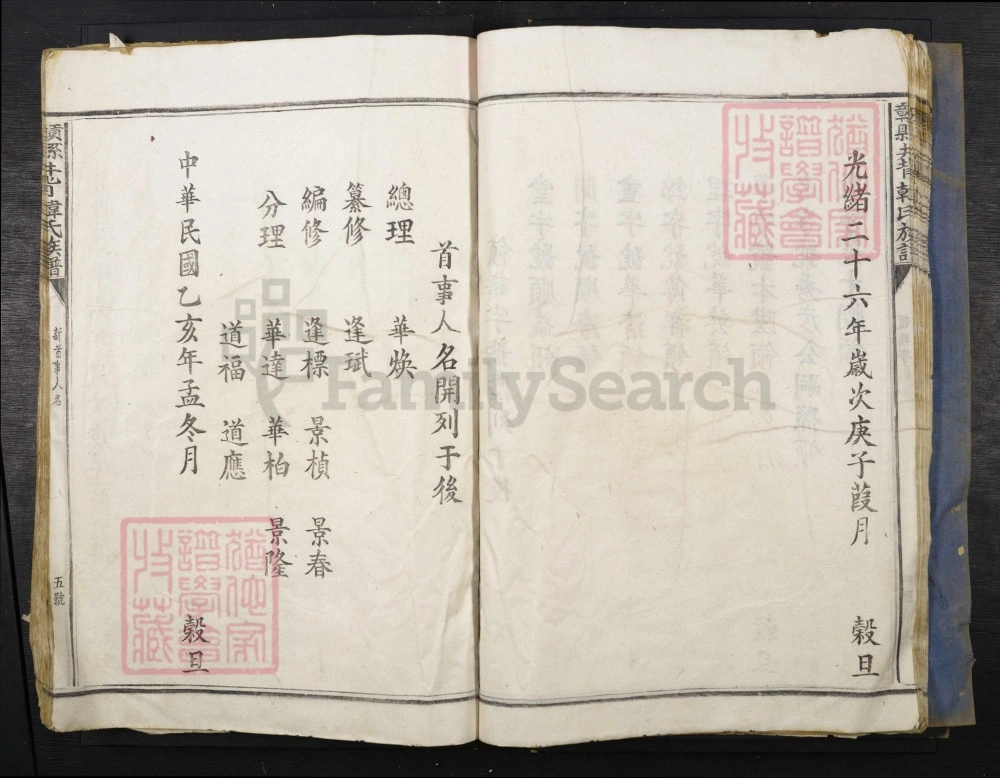 光緒二十六年歲次庚子葭月 穀旦
首事人名開列于後
總理 華煥
纂修 逢珷
編修 逢標 景楨 景春
分理 華達 華柏 景隆
道福 道應
中華民國乙亥年孟冬月 穀旦
韓氏族譜
新首事人名
五號
FamilySearch